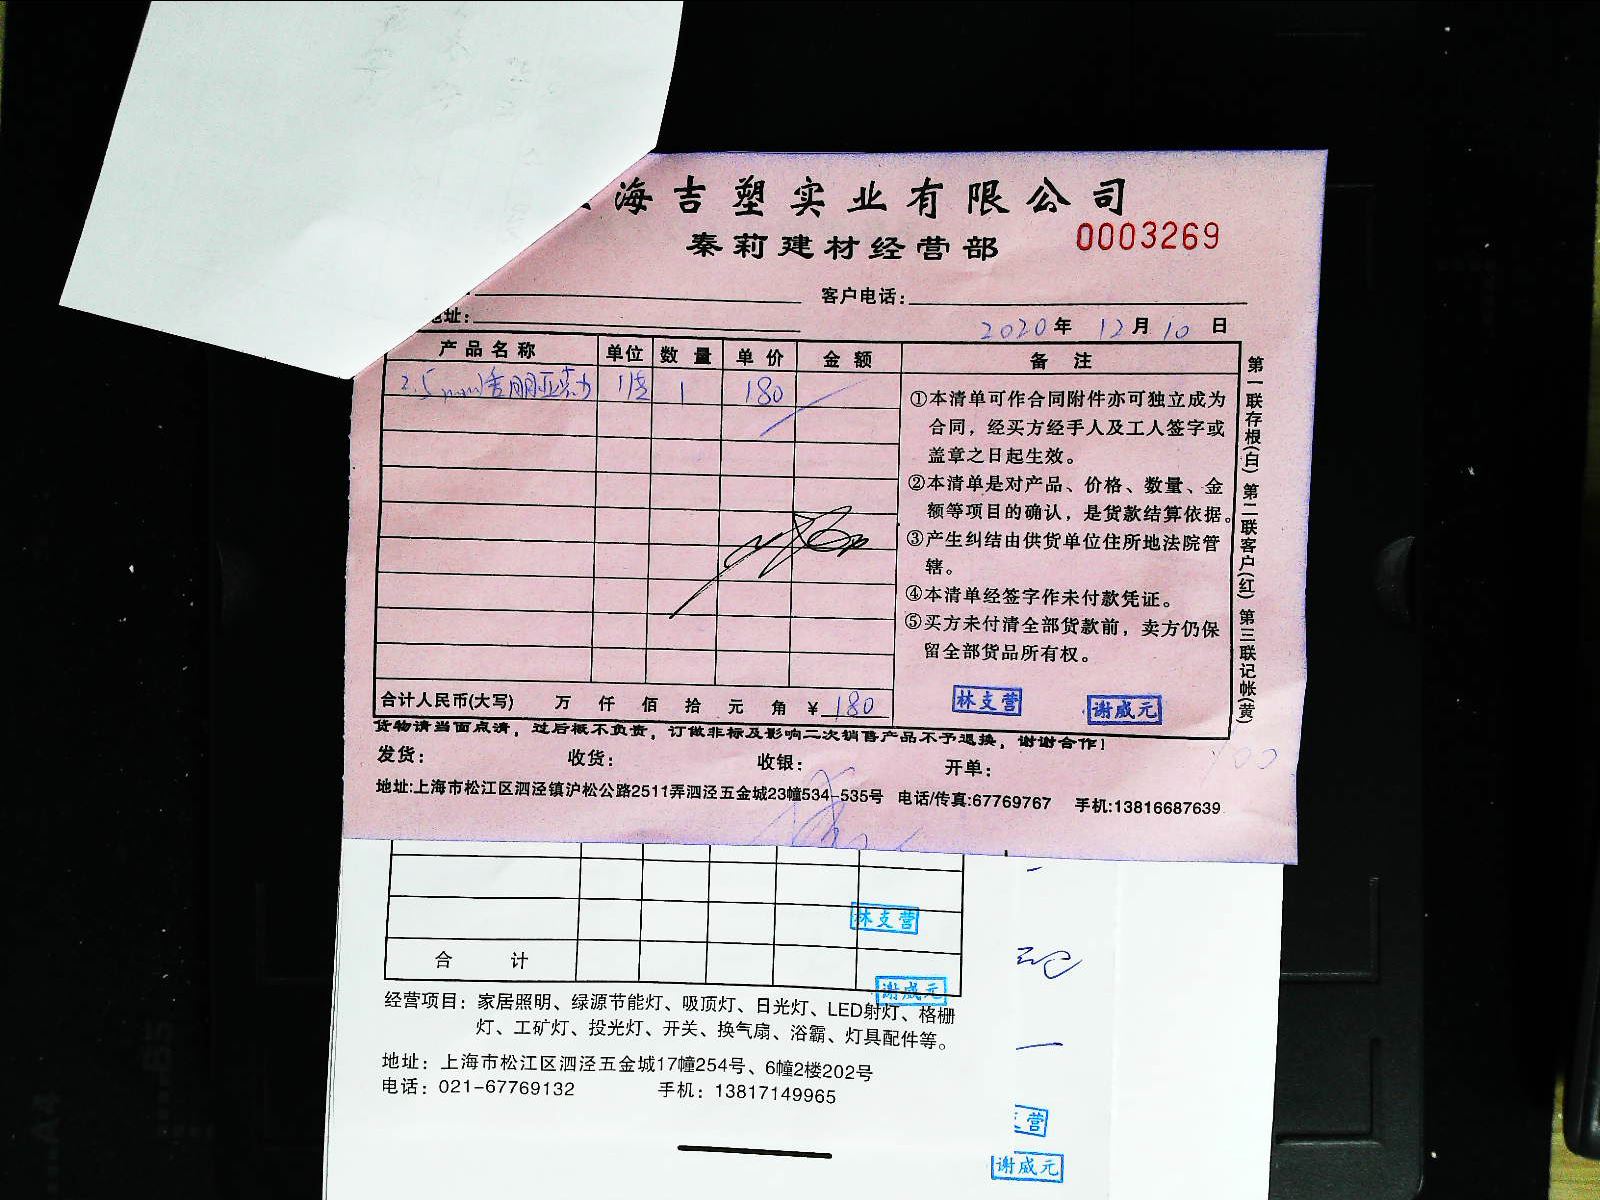 海吉塑实业有限公司
秦莉建材经营部
0003269
客户电话：
址：
2020年 12月 10日
产品名称 单位 数量 单价 金额 备注
2.5mm 1 180
①本清单可作合同附件亦可独立成为
合同，经买方经手人及工人签字或
盖章之日起生效。
②本清单是对产品、价格、数量、金
额等项目的确认，是货款结算依据。
③产生纠结由供货单位住所地法院管
辖。
④本清单经签字作未付款凭证。
⑤买方未付清全部货款前，卖方仍保
留全部货品所有权。
林支营 谢威元
第一联存根(白) 第二联客户(红) 第三联记帐(黄)
合计人民币(大写) 万 仟 佰 拾 元 角 ￥180
货物请当面点清，过后概不负责，订做非标及影响二次销售产品不予退换，谢谢合作！
发货： 收货： 收银： 开单：
地址:上海市松江区泗泾镇沪松公路2511弄泗泾五金城23幢534-535号 电话/传真:67769767 手机:13816687639
林支营
合 计
谢威元
经营项目：家居照明、绿源节能灯、吸顶灯、日光灯、LED射灯、格栅
灯、工矿灯、投光灯、开关、换气扇、浴霸、灯具配件等。
地址：上海市松江区泗泾五金城17幢254号、6幢2楼202号
电话：021-67769132 手机：13817149965
营
谢威元